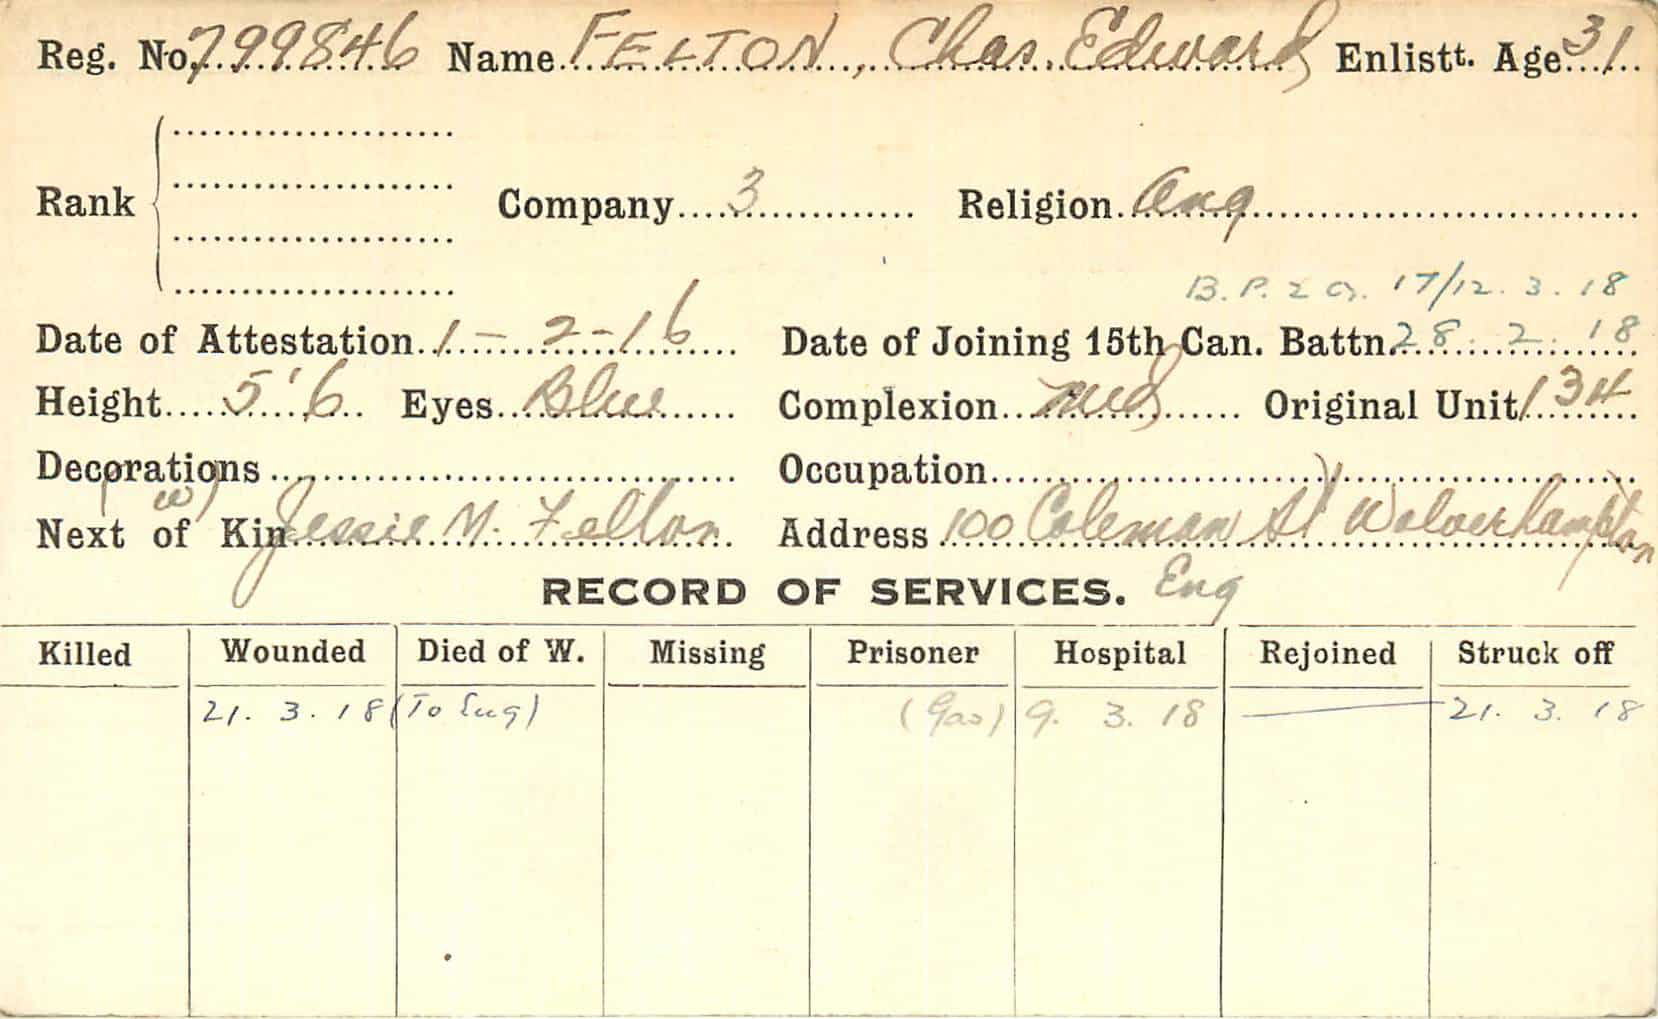 Reg. No. 799846 Name FELTON, Chas. Edward Enlistt. Age 31
Rank Company 3 Religion Ang
B.P. 2 O. 17/12.3.18
Date of Attestation 1-2-16 Date of Joining 15th Can. Battn. 28.2.18
Height 5'6 Eyes Blue Complexion Med Original Unit 134
Decorations Occupation
(w)
Next of Kin Jessie M. Felton Address 100 Coleman St Wolverhampton
RECORD OF SERVICES. Eng
Killed Wounded Died of W. Missing Prisoner Hospital Rejoined Struck off
21.3.18 (To Eng) (Gas) 9.3.18 — 21.3.18